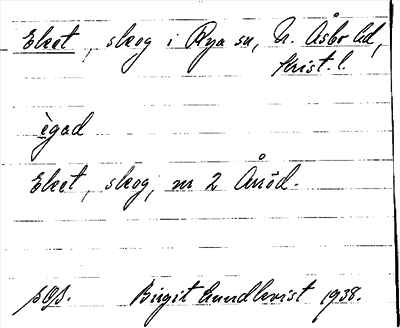 Eket, skog i Rya sn, N. Åsbo hd,
Krist. l.
ègad
Eket, skog, nr 2 Åröd.
sgs. Birgit Lundkvist 1938.